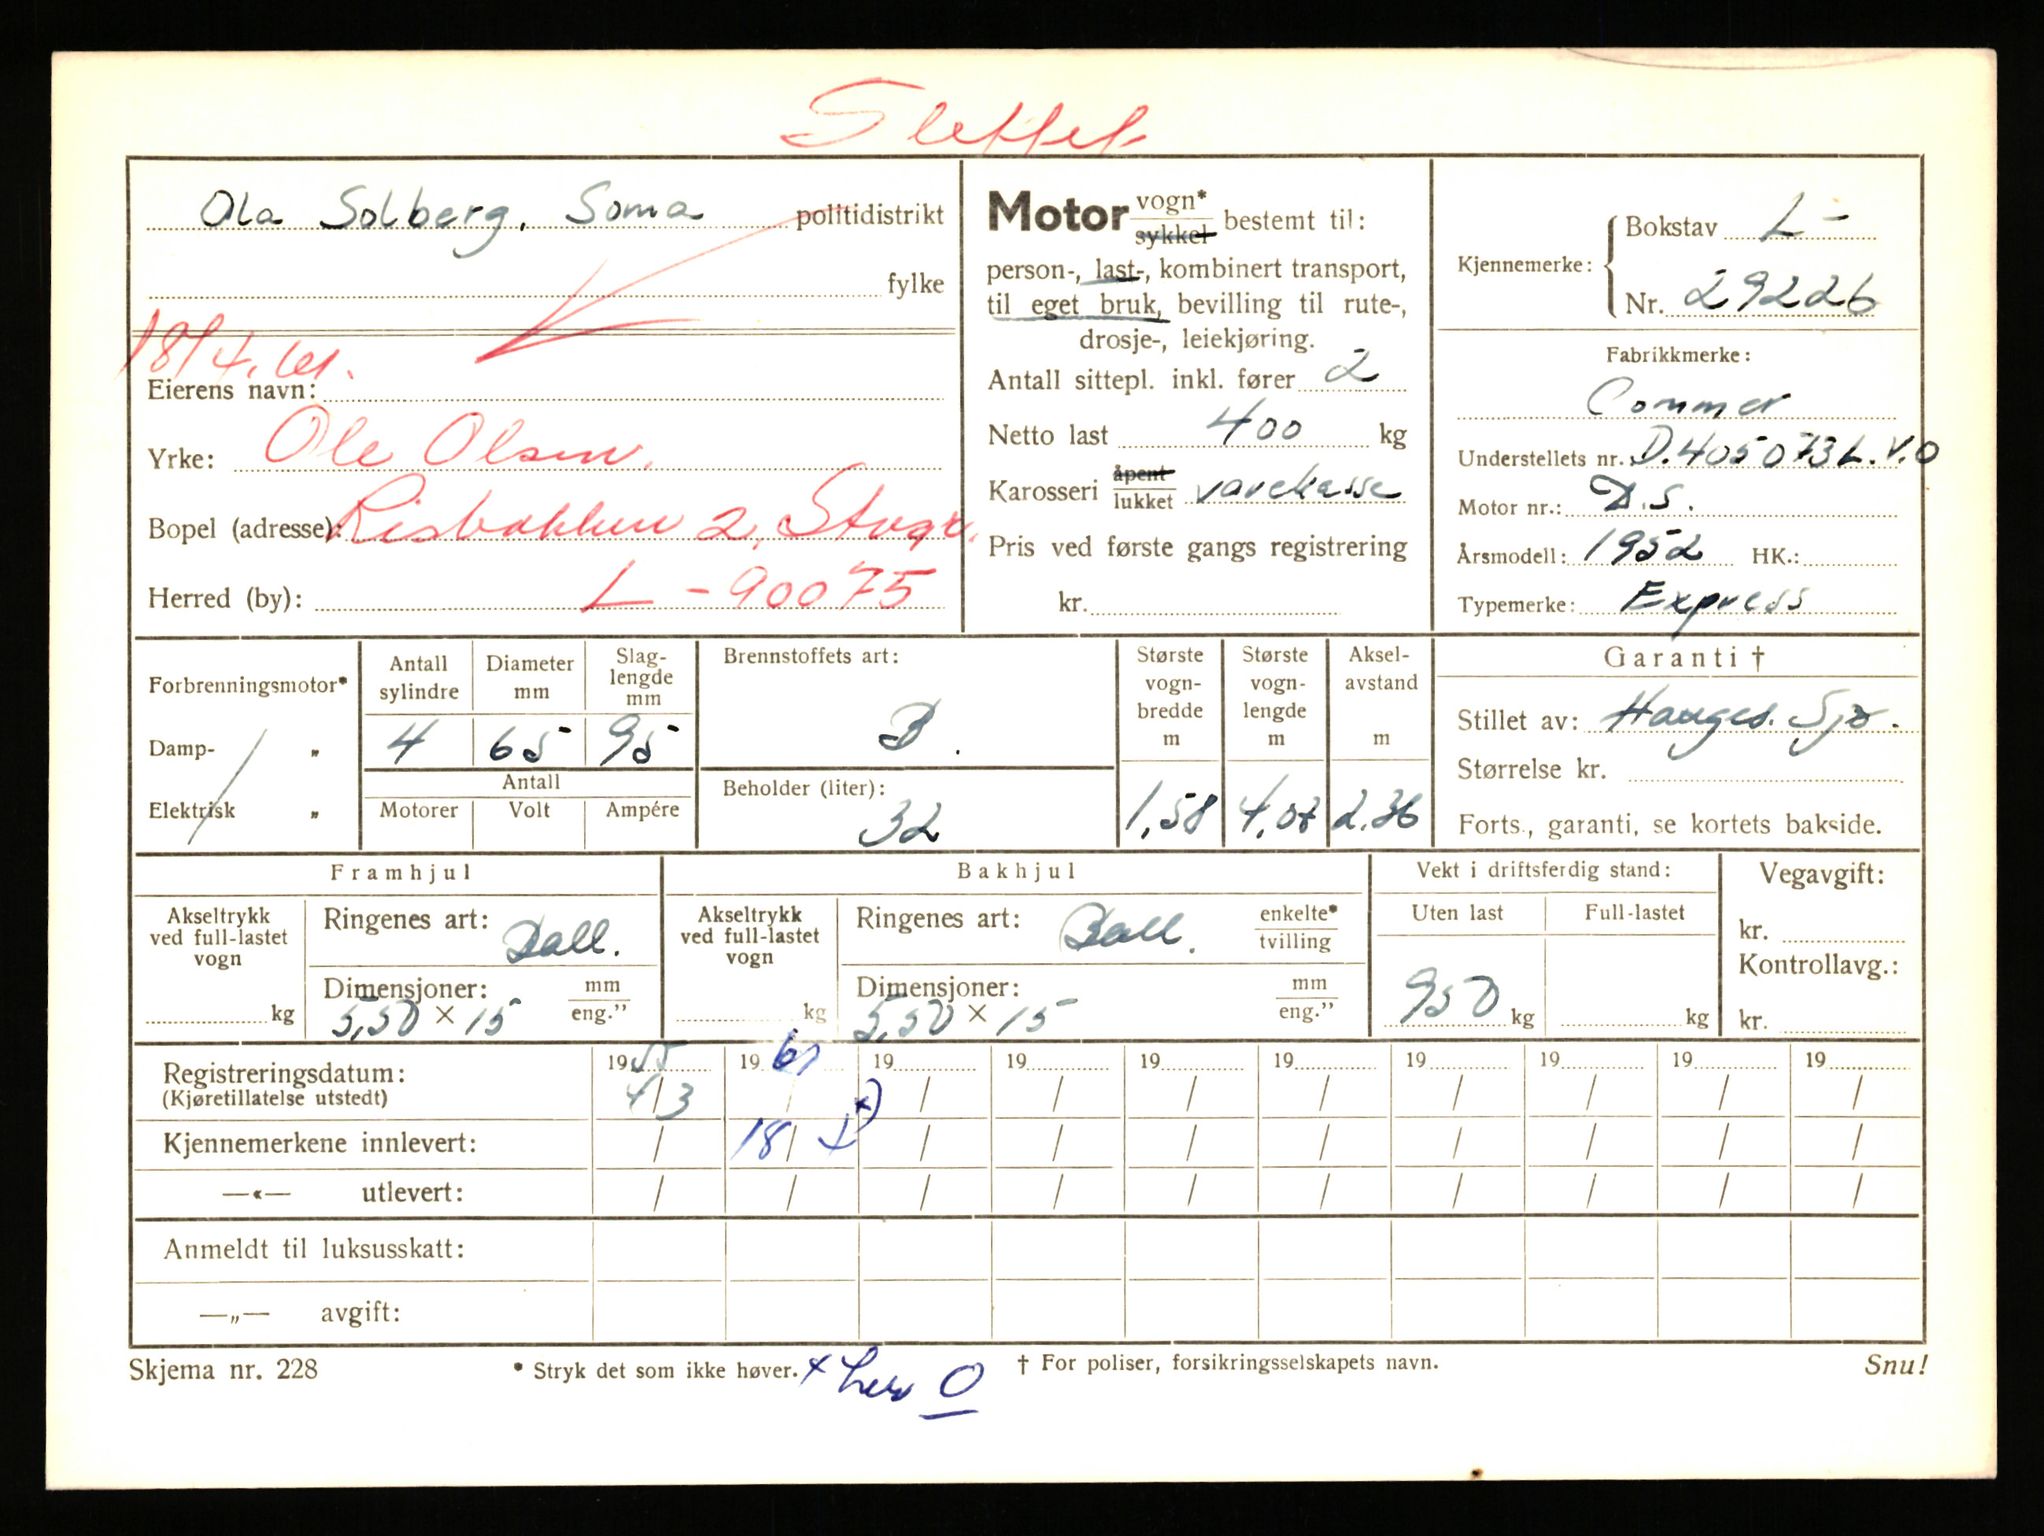 Slettet
Ola Solberg, Soma politidistrikt
fylke
18/4. 61.
Eierens navn:
Yrke: Ole Olsen.
Bopel (adresse): Risbakken 2, Stvgr.
Herred (by): L - 90075
Motor vogn* sykkel bestemt til:
person-, last-, kombinert transport,
til eget bruk, bevilling til rute-,
drosje-, leiekjøring.
Antall sittepl. inkl. fører 2
Netto last 400 kg
Karosseri åpent lukket varekasse
Pris ved første gangs registrering
kr.
Kjennemerke: Bokstav L-
Nr. 29226
Fabrikkmerke:
Commer
Understellets nr. D.405073L.V.O
Motor nr.: D.S.
Årsmodell: 1952 HK.:
Typemerke: Express
Forbrenningsmotor*
Damp- „
Elektrisk „
Antall sylindre Diameter mm Slag-lengde mm
4 65 95
Antall
Motorer Volt Ampére
Brennstoffets art:
B.
Beholder (liter):
32
Største vogn-bredde m Største vogn-lengde m Aksel-avstand m
1,58 4,07 2.36
Garanti †
Stillet av: Hauges. Sjø.
Størrelse kr.
Forts., garanti, se kortets bakside.
Framhjul
Akseltrykk ved full-lastet vogn
kg
Ringenes art: Ball.
Dimensjoner: mm eng.”
5,50 × 15
Bakhjul
Akseltrykk ved full-lastet vogn
kg
Ringenes art: Ball. enkelte* tvilling
Dimensjoner: mm eng.”
5,50 × 15
Vekt i driftsferdig stand:
Uten last Full-lastet
950 kg kg
Vegavgift:
kr.
Kontrollavg.:
kr.
Registreringsdatum: 1955 1961 19 19 19 19 19 19 19 19
(Kjøretillatelse utstedt) 4/3 / / / / / / / / /
Kjennemerkene innlevert: / 18/ / / / / / / / /
—«— utlevert: / / / / / / / / / /
Anmeldt til luksusskatt:
—„— avgift:
Skjema nr. 228 * Stryk det som ikke høver. † For poliser, forsikringsselskapets navn. Snu!